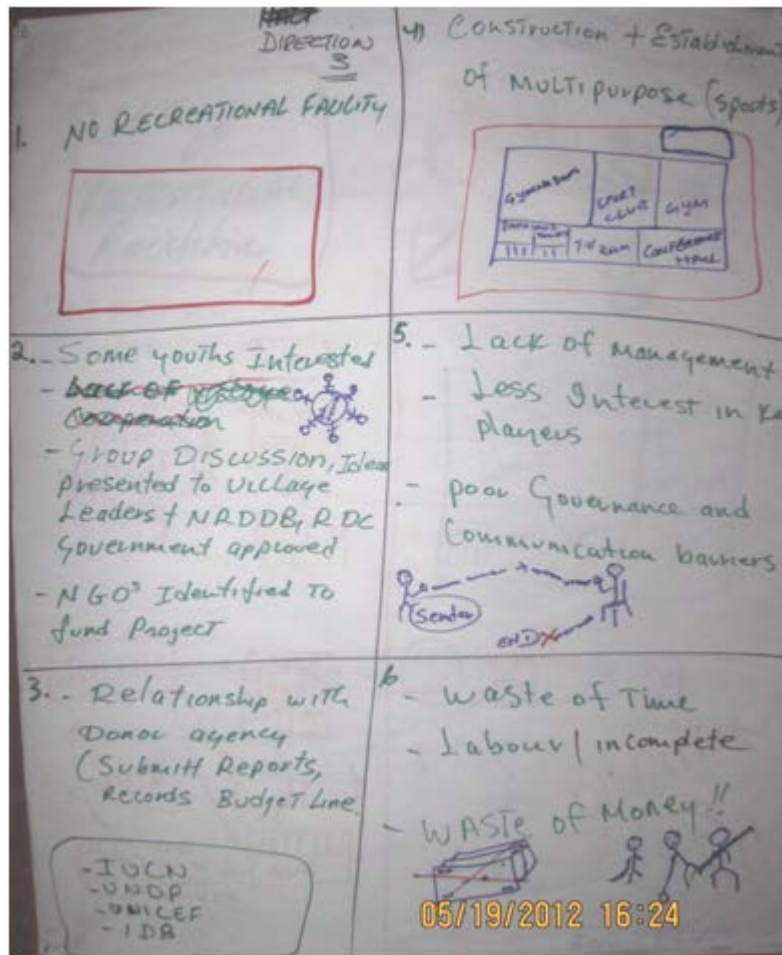 DIRECTION
3
1. NO RECREATIONAL FACILITY
2. - Some youths Interested
- Lack of
Cooperation
- Group Discussion, Ideas
presented to Village
Leaders + NRDDB, RDC
Government approved
- NGOs Identified To
fund Project
3. - Relationship with
Donor agency
(Submitt Reports,
Records Budget Line.
- IUCN
- UNDP
- UNICEF
- IDB
4) Construction + Establishment
of Multipurpose (sports)
Gymnasium
SPORT
CLUB
Gym
T.V Room
CONFERENCE
HALL
5. - Lack of management
- Less Interest in
players
- poor Governance and
Communication barriers
Sender
END X
6
- Waste of Time
- Labour / incomplete
- WASTE of Money!!
05/19/2012 16:24